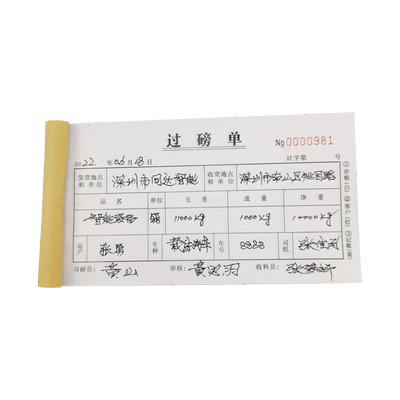 过磅单
No 0000981
2022年06月18日 计字第 号
发货地点和单位 深圳市同达智能 收货地点和单位 深圳市南山区桃园路
品名 单位 毛重 皮重 净重
智能设备 箱 11000Kg 1000Kg 10000Kg
运户 张勇 车种 载货车 车号 8888 司机
司磅员：黄山 审核：黄思雨 收料员：
①存根(白) ②客户(红) ③记账(黄)